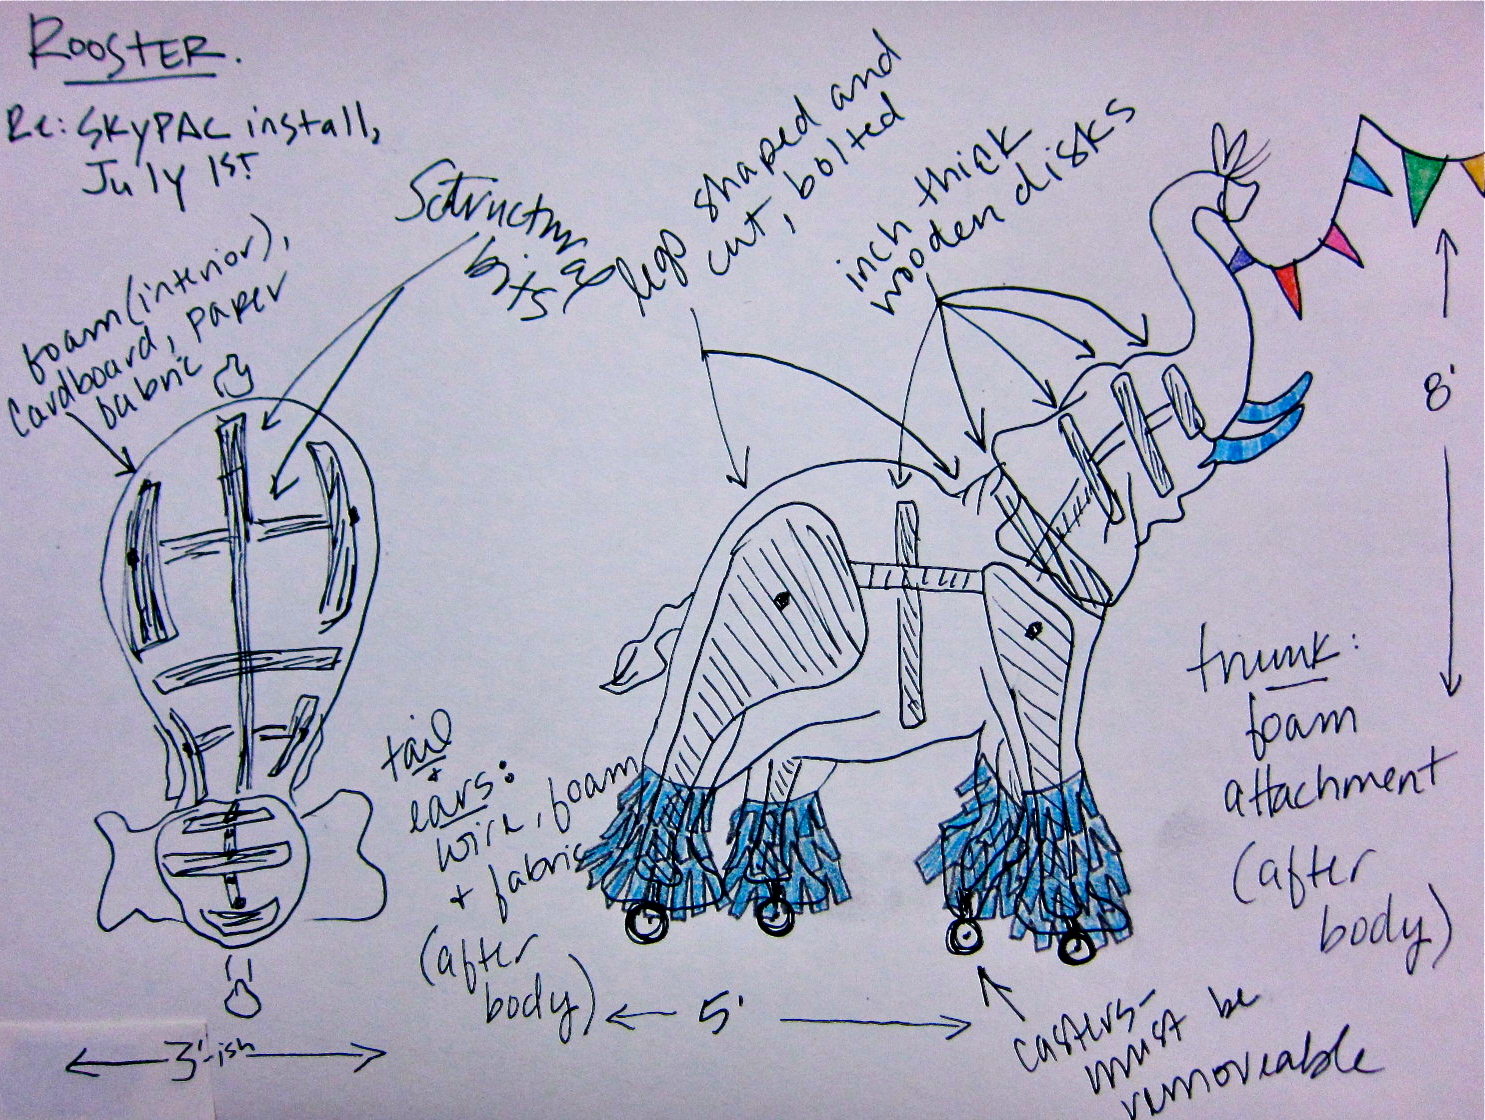 ROOSTER.
Re: SKyPAC install,
July 1st
foam (interior),
cardboard, paper
fabric
bits
legs shaped and
cut, bolted
inch thick
wooden disks
8'
trunk:
foam
attachment
(after
body)
tail
+
ears:
wire, foam
+ fabric
(after
body)
5'
3'-ish
casters-
must be
removeable